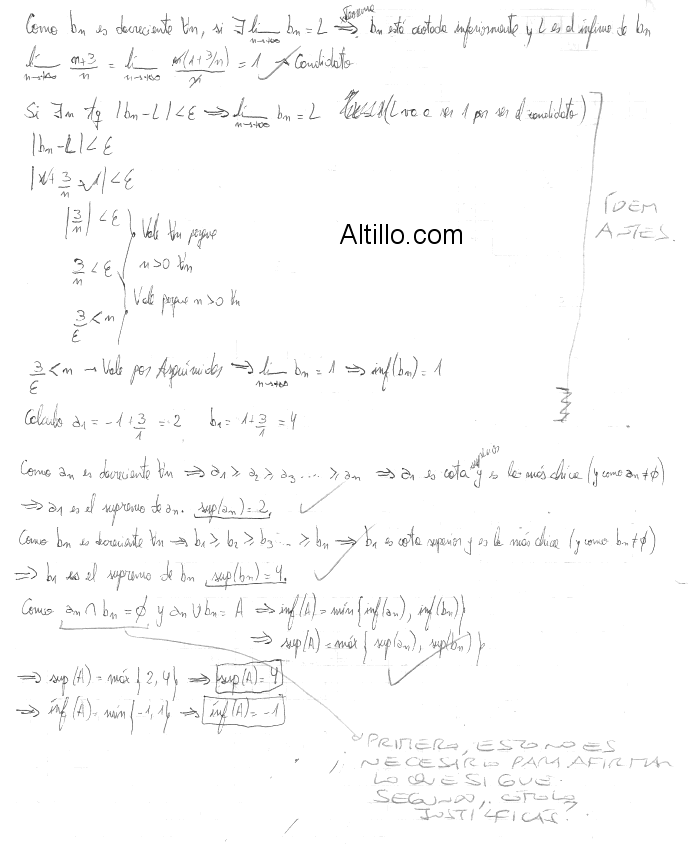 Como bn es decreciente ∀n, si ∃ lim n→+∞ bn = L ⇒ Teorema bn está acotada inferiormente y L es el ínfimo de bn
lim n→+∞ n+3/n = lim n→+∞ n(1+3/n)/n = 1 → Candidato
Si ∃n tq |bn-L|<ε ⇒ lim n→+∞ bn = L (L va a ser 1 por ser el candidato)
|bn-L|<ε
|1+3/n-1|<ε
|3/n|<ε Vale ∀n porque
3/n<ε n>0 ∀n
Vale porque n>0 ∀n
3/ε<n
ÍDEM
ANTES.
Altillo.com
3/ε<n → Vale por Arquímedes ⇒ lim n→+∞ bn = 1 ⇒ inf(bn)=1
Calculo a1 = -1+3/1 = 2 b1 = 1+3/1 = 4
Como an es decreciente ∀n ⇒ a1 ≥ a2 ≥ a3 .... ≥ an ⇒ a1 es cota superior y es la más chica (y como an≠∅)
⇒ a1 es el supremo de an. sup(an)=2.
Como bn es decreciente ∀n ⇒ b1 ≥ b2 ≥ b3 ... ≥ bn ⇒ b1 es cota superior y es la más chica (y como bn≠∅)
⇒ b1 es el supremo de bn sup(bn)=4.
Como an ∩ bn = ∅ y an ∪ bn = A ⇒ inf(A) = mín{inf(an), inf(bn)}
⇒ sup(A) = máx{sup(an), sup(bn)}
⇒ sup(A) = máx{2,4} ⇒ sup(A)=4
⇒ inf(A) = mín{-1,1} ⇒ inf(A)=-1
PRIMERO, ESTO NO ES
NECESARIO PARA AFIRMAR
LO QUE SIGUE.
SEGUNDO, CÓMO LO
JUSTIFICÁS?